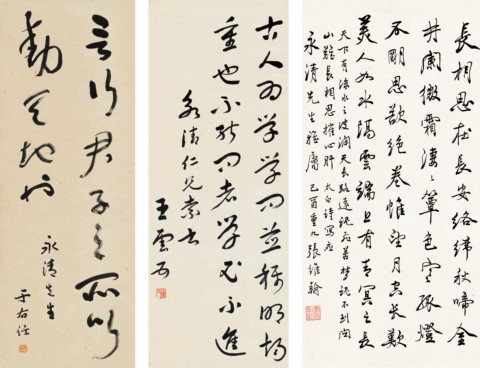 長相思在長安絡緯秋啼金
井闌微霜淒淒簟色寒孤燈
不明思欲絕卷帷望月空長歎
美人如花隔雲端上有青冥之長
天下有淥水之波瀾天長路遠魂飛苦夢魂不到關
山難長相思摧心肝 太白詩寫應
永清先生雅屬 己酉重九張維翰
古人為學學問並稱明均
重也不能問者學必不進
永清仁兄索書
王雲五
言行君子之所以
動天地也
永清先生
于右任